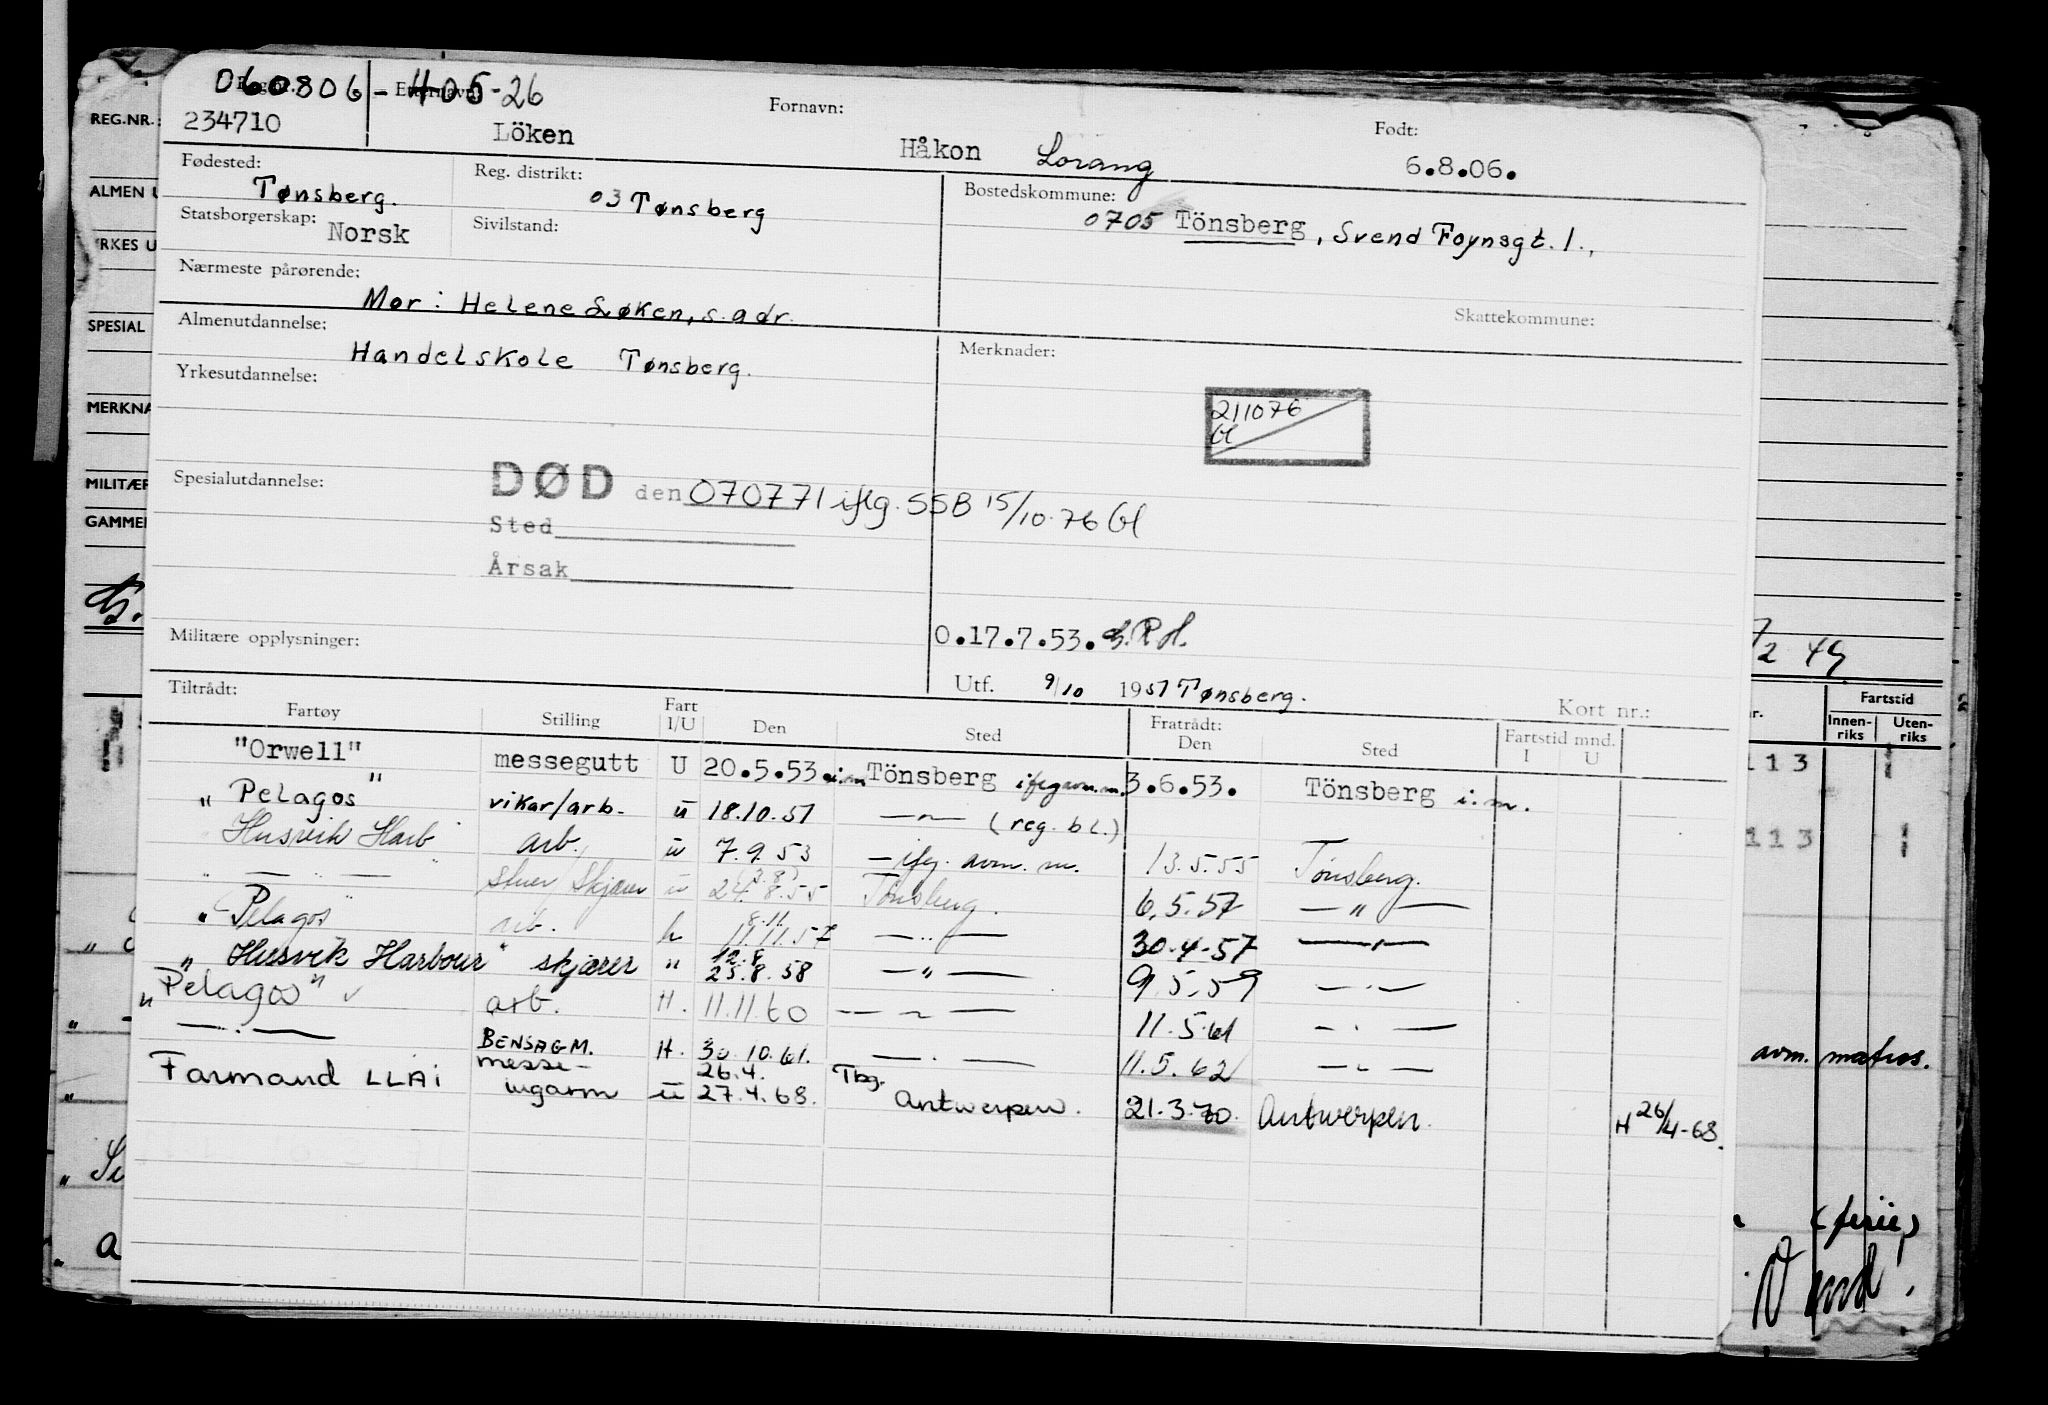 060806 - 405-26
Regnr. Etternavn: Fornavn: Født:
234710 Löken Håkon Lorang 6.8.06.
Fødested: Reg. distrikt: Bostedskommune:
Tønsberg. 03 Tønsberg 0705 Tönsberg, Svend Foynsgt. 1.,
Statsborgerskap: Norsk Sivilstand:
Nærmeste pårørende:
Mor: Helene Løken, s. adr. Skattekommune:
Almenutdannelse: Merknader:
Handelskole Tønsberg.
Yrkesutdannelse:
211076
Gl
Spesialutdannelse: DØD den 070771 iflg. SSB 15/10.76 Gl
Sted
Årsak
Militære opplysninger: O.17.7.53.
Utf. 9/10 1951 Tønsberg.
Tiltrådt: Kort nr.:
Fartøy Stilling Fart I/U Den Sted Fratrådt: Den Sted Fartstid mnd. I U
"Orwell" messegutt U 20.5.53. i.m Tönsberg 3.6.53. Tönsberg i.m.
" Pelagos " vikar/arb. u 18.10.51 — " — (reg. bl.)
Husvik Harb arb. u 7.9.53 — ifg. avm. m. 13.5.55 Tønsberg.
" — " — Skjærer u 24.8.55 Tönsberg. 6.5.57 — " —
" Pelagos " arb. h 8.11. 11.11.57 — " — 30.4.57 — " —
" Husvik Harbour " skjærer " 12.8 25.8.58 — " — 9.5.59 — " —
" Pelagos " arb. H. 11.11.60 — " — 11.5.61 — " —
— " — BENSAGM. H. 30.10.61. — " — 11.5.62 — " —
Farmand LLAI messe- 26.4. Tbg.
ungarm u 27.4.68. Antwerpen. 21.3.70. Antwerpen. H 26/4-68.
REG.NR.:
ALMEN
YRKES U
SPESIAL
MERKNA
MILITÆR
GAMMEL
/2 49
Fartstid
Innen-riks Uten-riks
113
113
avm. matros.
(ferie)